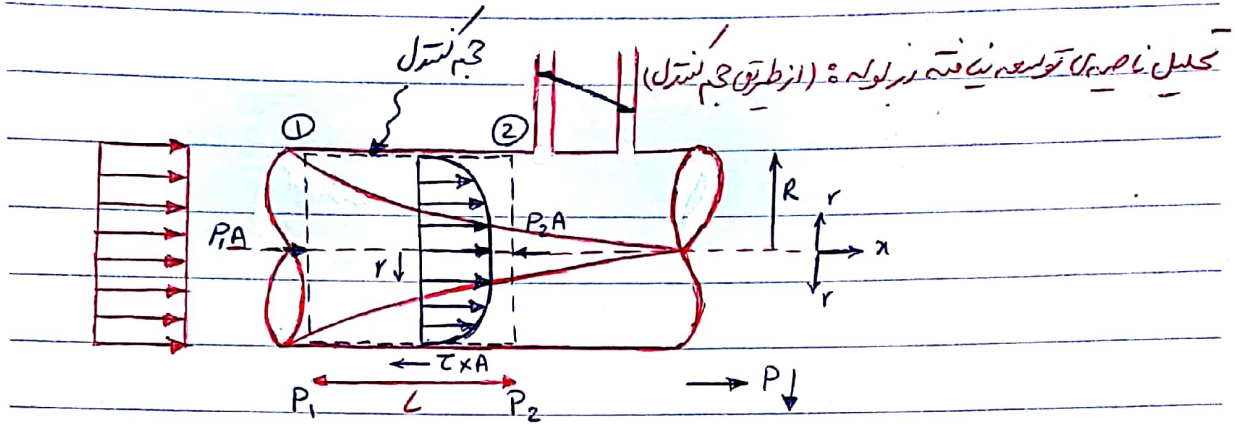 تحلیل ناحیه‌ی توسعه نیافته در لوله : (از طریق حجم کنترل)
حجم کنترل
① ②
R
r
P₁A P₂A x
r
r
← τ×A
P₁ L P₂ → P↓